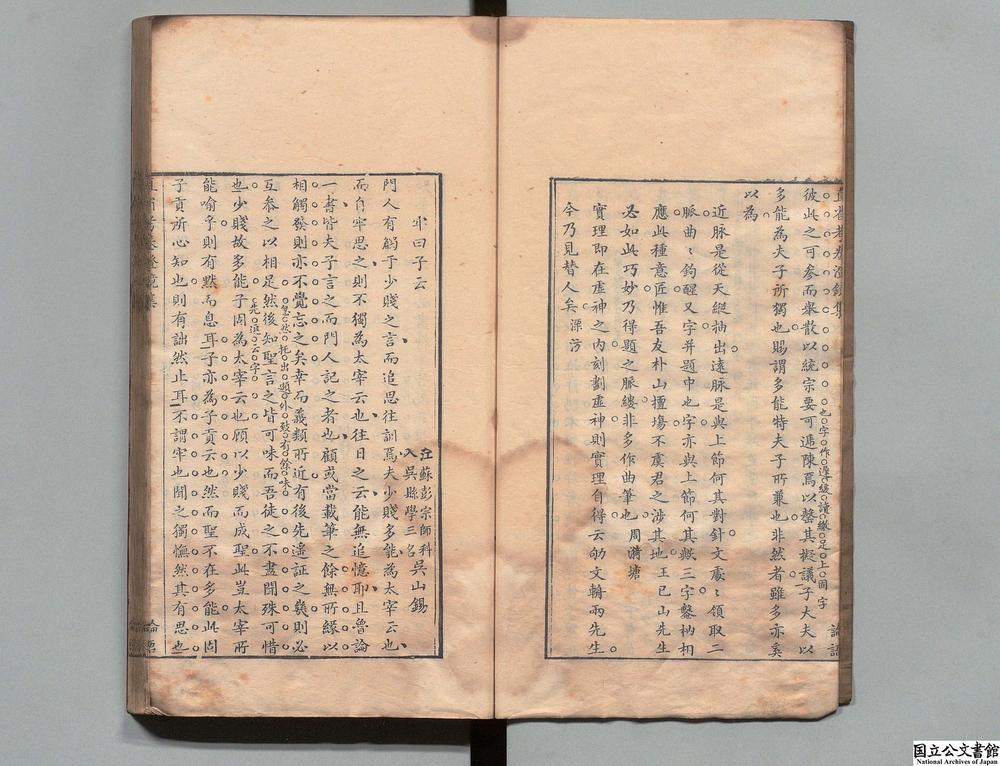 彼此之可參而舉散以統宗要可遞陳焉以罄其擬議子大夫以
也字作遵緩讀繳足上固字
多能為夫子所獨也賜謂多能特夫子所兼也非然者雖多亦奚
以為
近脉是從天縱抽出遠脉是與上節何其對針文處處領取二
脈曲曲鉤醒又字并題中也字亦與上節何其歟三字鑿枘相
應此種意匠惟吾友朴山擅塲不虞君之涉其地 王已山先生
必如此巧妙乃得題之脈縷非多作曲筆也 周漪塘
實理即在虛神之内刻劃虛神則實理自得云劬文輈兩先生
今乃見替人矣
論語
牢曰子云
江蘇彭宗師科
入吳縣學三名
吳山錫
門人有觸于少賤之言而追思往訓焉夫少賤多能為太宰云也
而自牢思之則不獨為太宰云也往日之云能無追憶耶且魯論
一書皆夫子言之而門人記之者也顧或當載筆之餘無所緣以
相觸發則亦不覺忘之矣幸而義類所近有後先遥証之義則必
忽然托出題外致有餘味
互參之以相足然後知聖言之皆可味而吾徒之不盡聞殊可惜
先逗云字
也少賤故多能子固為太宰云也顧以少賤而成聖此豈太宰所
能喻乎則有默而息耳子亦為子貢云也然而聖不在多能此固
子貢所心知也則有詘然止耳不謂牢也聞之獨憮然其有思也
論語
国立公文書館
National Archives of Japan